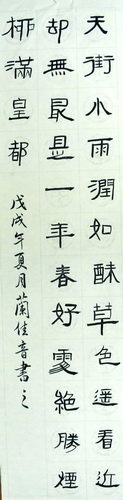 天街小雨潤如酥草色遥看近
却無最是一年春好處絶勝煙
桺滿皇都
戊戌年夏月蘭佳音書之